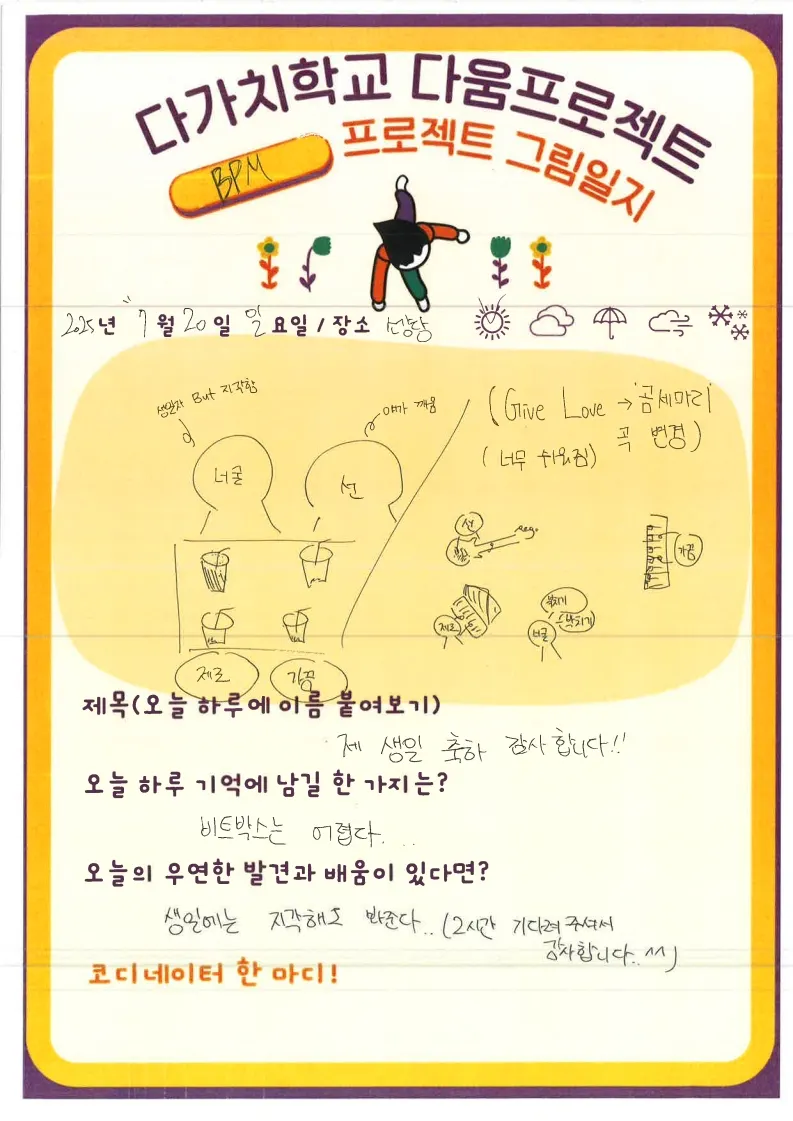 다가치학교 다움프로젝트
프로젝트 그림일지
BPM
2025년 7월 20일 일요일 / 장소
생일자 But 지각함
너굴
선
(Give Love → '곰세마리'
곡 변경)
(너무 쉬워짐)
선
가끔
제로
북치기
박치기
너굴
제로
가끔
제목(오늘 하루에 이름 붙여보기)
제 생일 축하 감사합니다!!
오늘 하루 기억에 남길 한 가지는?
비트박스는 어렵다...
오늘의 우연한 발견과 배움이 있다면?
생일에는 지각해도 봐준다.. (2시간 기다려 주셔서
감사합니다.. ^^)
코디네이터 한 마디!